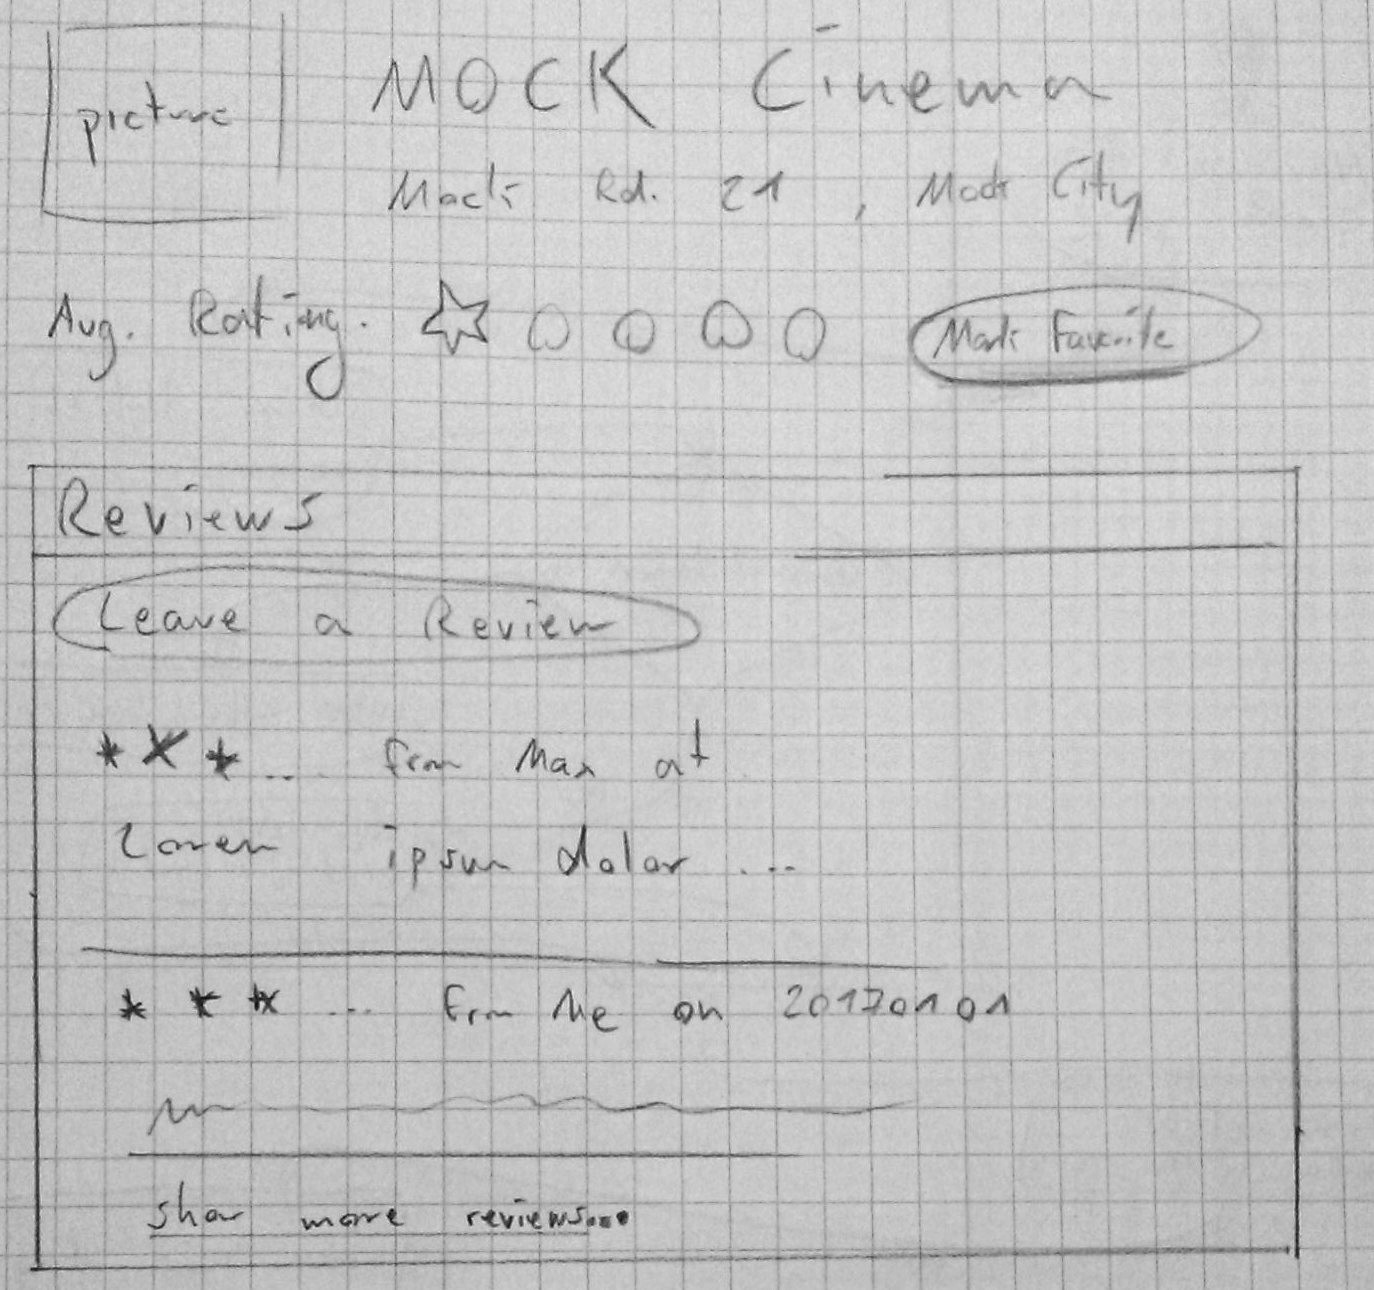 picture
MOCK Cinema
Mock Rd. 21, Mock City
Avg. Rating.
Mark Favorite
Reviews
Leave a Review
*** ... from Max at
Lorem ipsum dolor ...
*** ... from Me on 20170101
show more reviews...